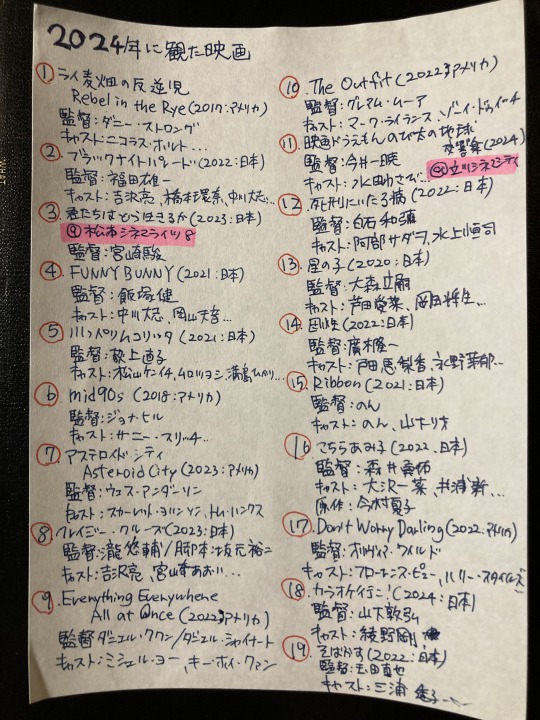 2024年に観た映画
① ライ麦畑の反逆児
Rebel in the Rye (2017:アメリカ)
監督:ダニー・ストロング
キャスト:ニコラス・ホルト…
② ブラックナイトパレード(2022:日本)
監督:福田雄一
キャスト:吉沢亮、橋本環奈、中川大志…
③ 君たちはどう生きるか(2023:日本)
@松本シネマライツ8
監督:宮崎駿
④ FUNNY BUNNY (2021:日本)
監督:飯塚健
キャスト:中川大志、岡山天音…
⑤ 川っぺりムコリッタ(2021:日本)
監督:荻上直子
キャスト:松山ケンイチ、ムロツヨシ、満島ひかり…
⑥ mid90s (2018:アメリカ)
監督:ジョナ・ヒル
キャスト:サニー・スリッチ…
⑦ アステロイド・シティ
Asteroid City (2023:アメリカ)
監督:ウェス・アンダーソン
キャスト:スカーレット・ヨハンソン、トム・ハンクス
⑧ クレイジー・クルーズ(2023:日本)
監督:瀧悠輔/脚本:坂元裕二
キャスト:吉沢亮、宮崎あおい…
⑨ Everything Everywhere
All at Once (2022:アメリカ)
監督:ダニエル・クワン/ダニエル・シャイナート
キャスト:ミシェル・ヨー、キー・ホイ・クァン
⑩ The Outfit (2022:アメリカ)
監督:グレアム・ムーア
キャスト:マーク・ライランス、ゾーイ・ドゥイッチ
⑪ 映画ドラえもん のび太の地球
交響楽(2024)
監督:今井一暁
@立川シネマシティ
キャスト:水田わさび…
⑫ 死刑にいたる病(2022:日本)
監督:白石和彌
キャスト:阿部サダヲ、水上恒司
⑬ 星の子(2020:日本)
監督:大森立嗣
キャスト:芦田愛菜、岡田将生…
⑭ 母性(2022:日本)
監督:廣木隆一
キャスト:戸田恵梨香、永野芽郁…
⑮ Ribbon (2021:日本)
監督:のん
キャスト:のん、山下リオ
⑯ こちらあみ子(2022:日本)
監督:森井勇佑
キャスト:大沢一菜、井浦新…
原作:今村夏子
⑰ Don't Worry Darling (2022:アメリカ)
監督:オリヴィア・ワイルド
キャスト:フローレンス・ピュー、ハリー・スタイルズ
⑱ カラオケ行こ!(2024:日本)
監督:山下敦弘
キャスト:綾野剛
⑲ そばかす(2022:日本)
監督:玉田真也
キャスト:三浦透子